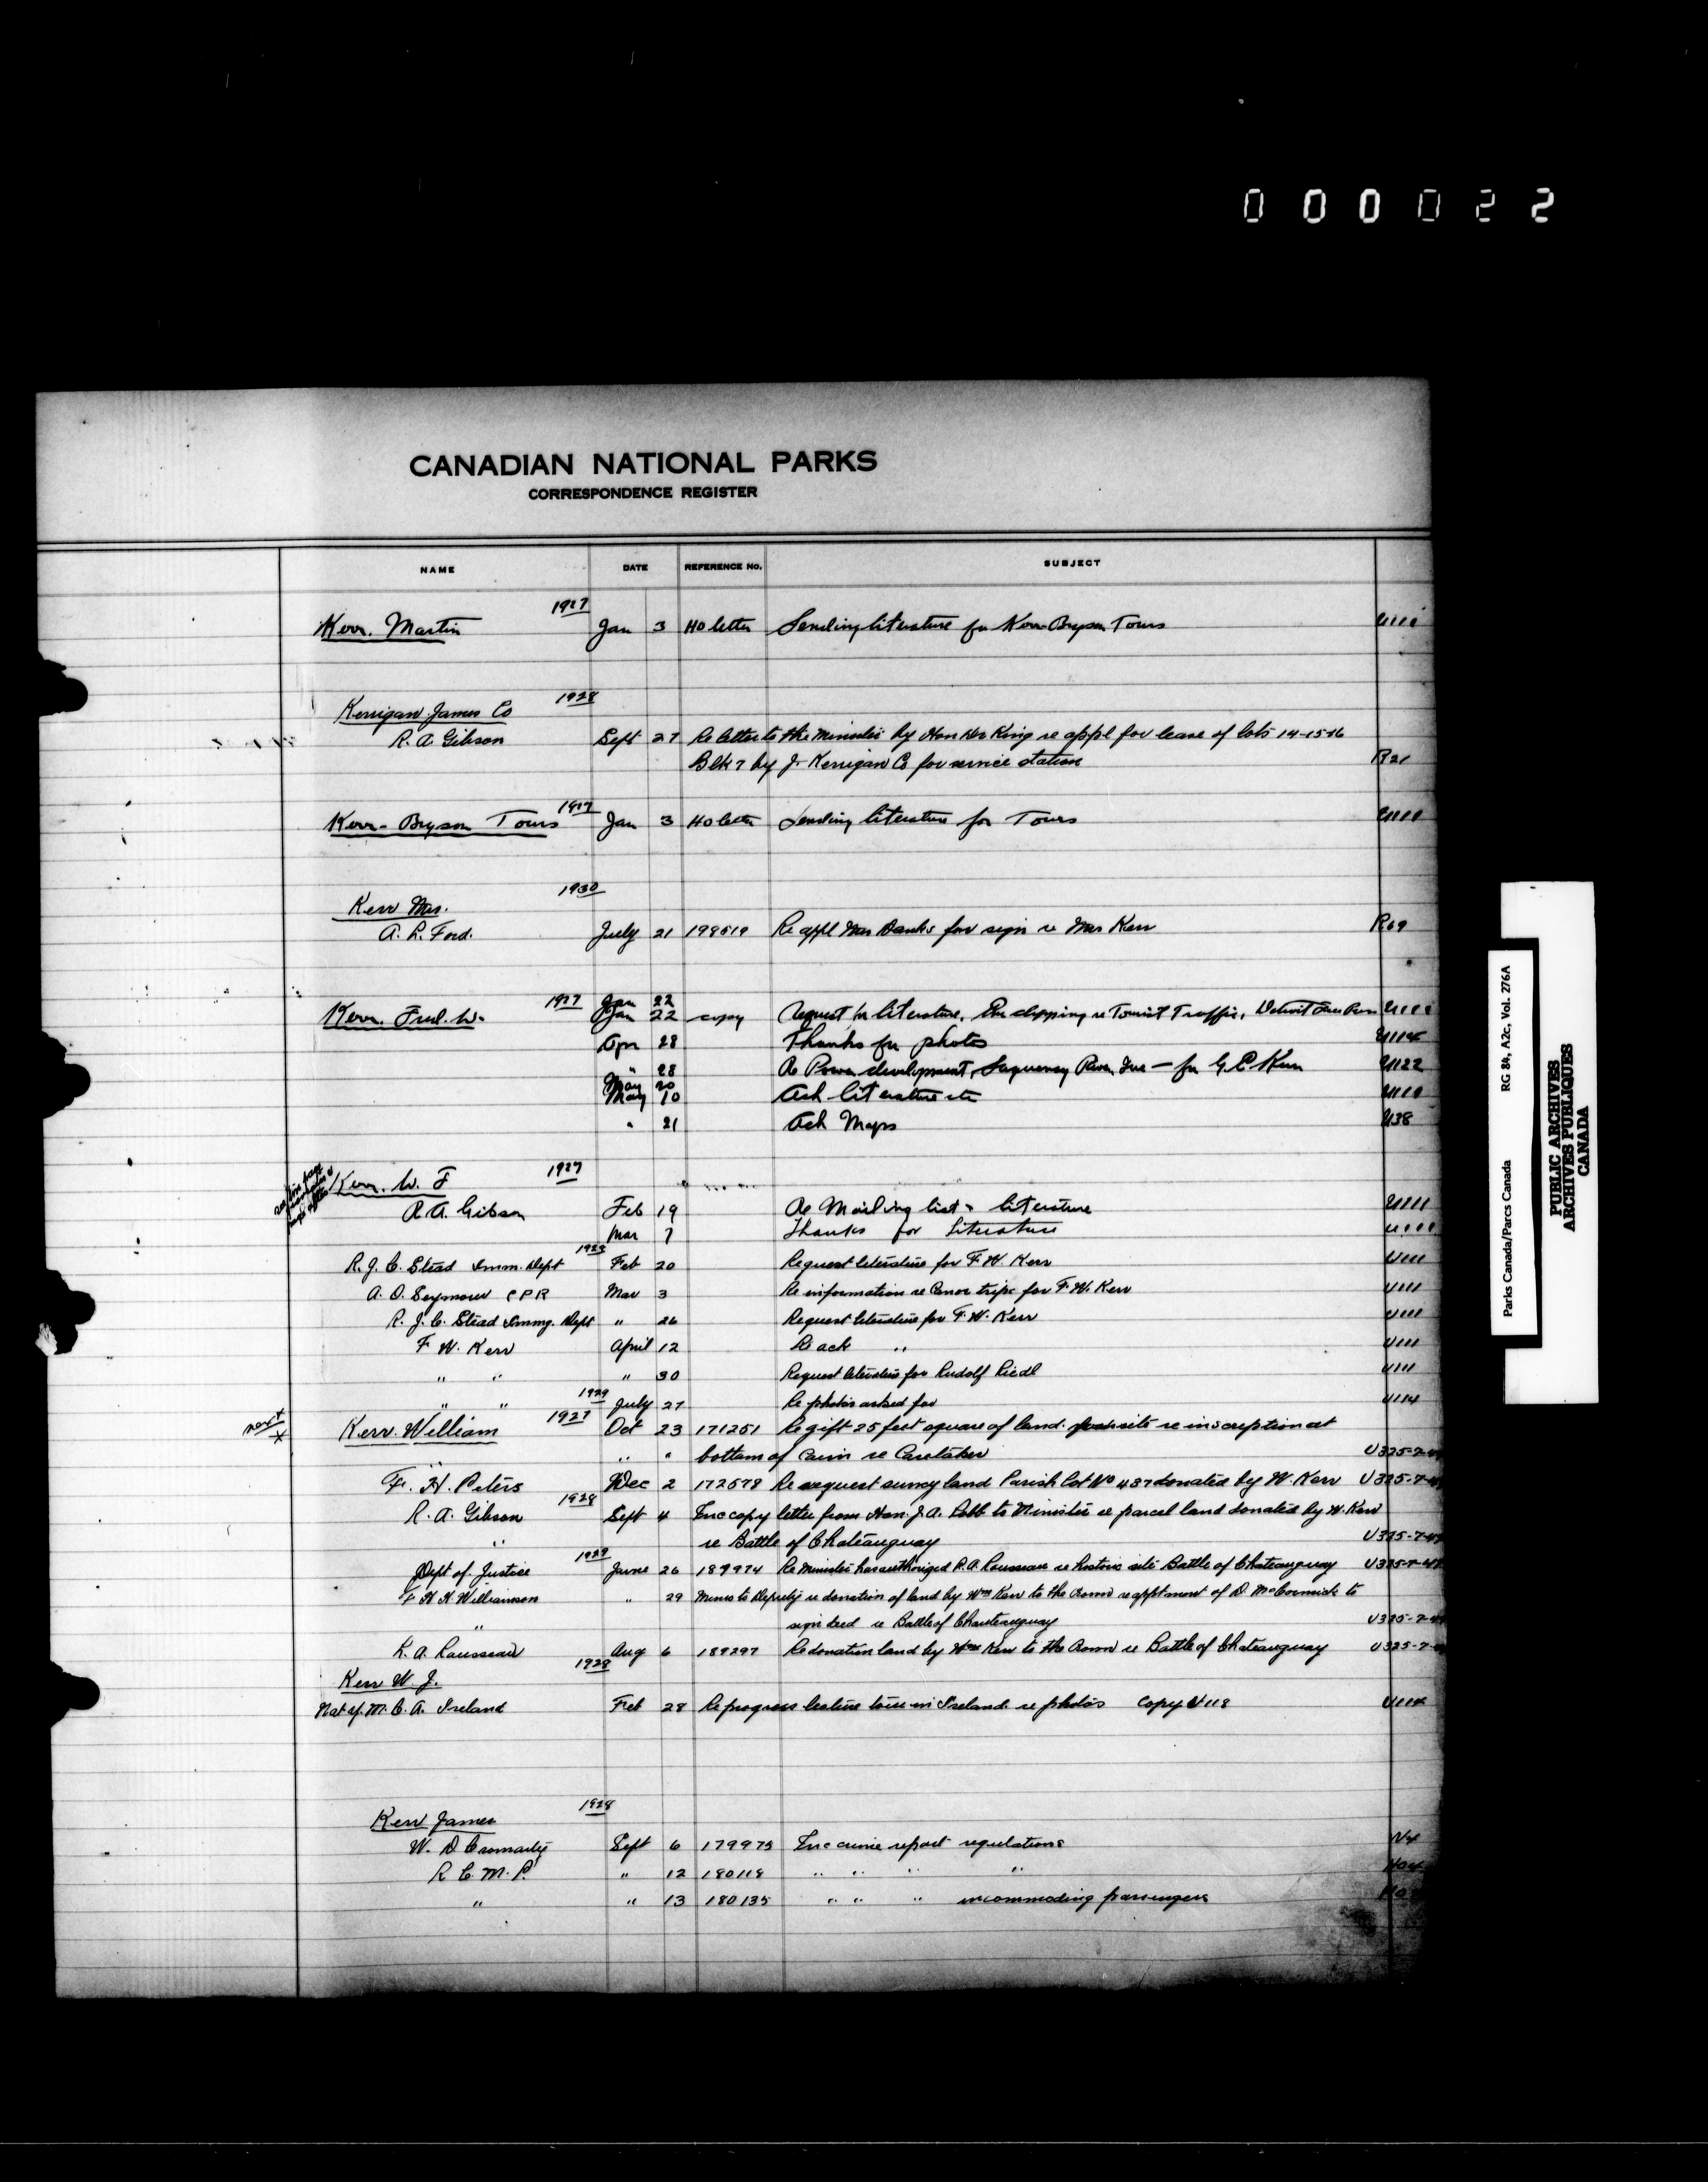 000022
CANADIAN NATIONAL PARKS
CORRESPONDENCE REGISTER
NAME DATE REFERENCE No. SUBJECT
1927
Kerr. Martin Jan 3 HO letter Sending literature for Kerr-Bryson Tours U111
1928
Kerrigan James Co
R. A. Gibson Sept 27 Re letter to the Minister by Hon Dr King re appl for lease of lots 14-15-16
Blk 7 by J. Kerrigan Co for service station R21
1927
Kerr-Bryson Tours Jan 3 HO letter Sending literature for Tours U111
1930
Kerr Mrs.
A. L. Ford. July 21 198519 Re appl Mrs Banks for sign re Mrs Kerr R69
Kerr. Fred. W. 1927 Jan 22
Jan 22 copy Request for literature, Enc clipping re Tourist Traffic, Detroit Free Press U111
Apr 28 Thanks for photos U114
" 28 Re Power development, Saguenay River, Que — for G. C. Kerr U122
May 20
May 10 Ack literature etc U111
" 21 Ack Maps U38
Kerr. W. F 1927
R. A. Gibson Feb 19 Re Mailing list & literature U111
Mar 7 Thanks for literature U111
1928
R. J. C. Stead Imm. Dept Feb 20 Request literature for F. W. Kerr U111
A. O. Seymour C P R Mar 3 Re information re Canoe trips for F. W. Kerr U111
R. J. C. Stead Immg. Dept " 26 Request literature for F. W. Kerr U111
F. W. Kerr April 12 Re ack " U111
" " " 30 Request literature for Rudolf Riedl U111
1929
" " July 27 Re photos asked for U114
next
x
Kerr. William 1927 Oct 23 171251 Re gift 25 feet square of land. site re inscription at
" " bottom of Cairn re Caretaker U325-7-
F. H. Peters Dec 2 172578 Re request survey land Parish Lot No 437 donated by W. Kerr U325-7-
1928
R. A. Gibson Sept 4 Enc copy letter from Hon. J. A. Robb to Minister re parcel land donated by W. Kerr
" re Battle of Chateauguay U325-7-
1929
Dept of Justice June 26 189974 Re Minister has authorized R. A. Rousseau re historic site Battle of Chateauguay U325-7-
F H H Williamson " 29 Memo to Deputy re donation of land by Wm Kerr to the Crown re apptment of D. McCormick to
" sign deed re Battle of Chauteauguay U325-7-
R. A. Rousseau Aug 6 189297 Re donation land by Wm Kerr to the Crown re Battle of Chateauguay U325-7-
1928
Kerr W. J.
Nat Y. M. C. A. Ireland Feb 28 Re progress lecture tour in Ireland re photos Copy U118 U114
1928
Kerr James
W. D Cromarty Sept 6 179975 Enc crime report regulations
R C M. P. " 12 180118 " " " "
" " 13 180135 " " " incommoding passengers
Parks Canada/Parcs Canada RG 84, A2c, Vol. 276A
PUBLIC ARCHIVES
ARCHIVES PUBLIQUES
CANADA